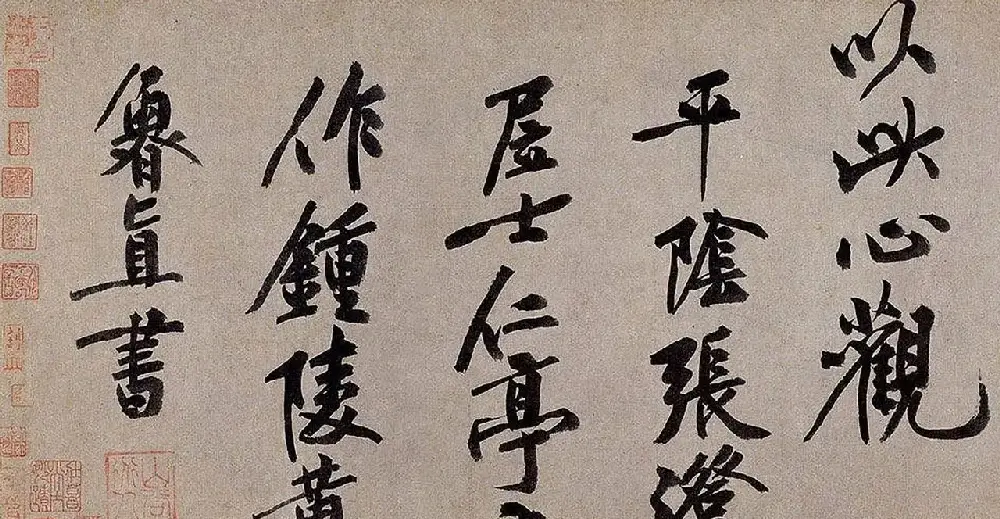 以此心觀
平陰張澄
居士仁亭
作鍾陵黃
魯直書